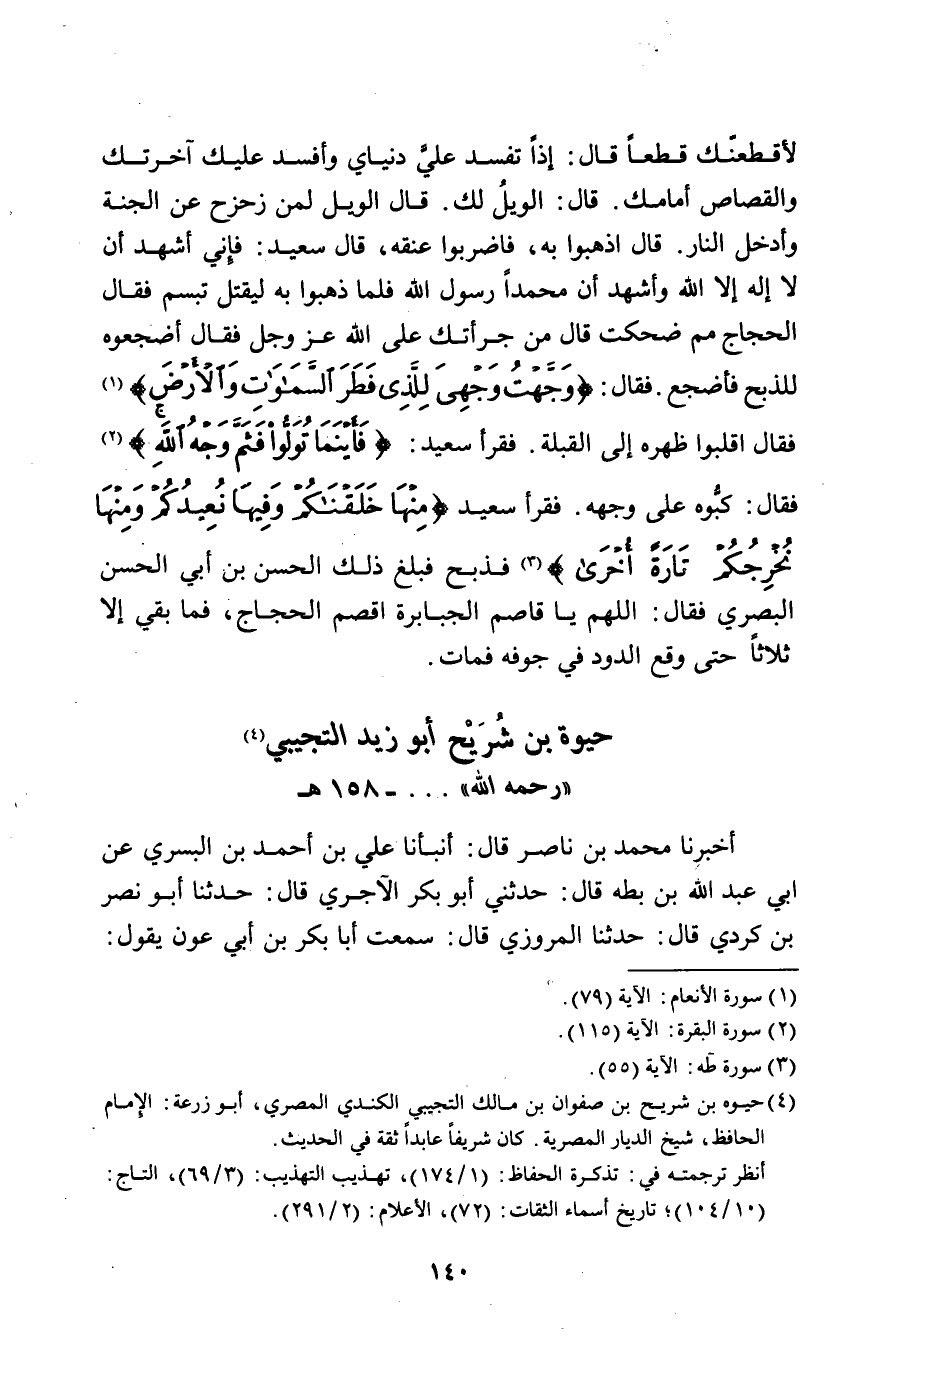 لأقطعنّك قطعاً قال: إذاً تفسد عليَّ دنياي وأفسد عليك آخرتك
والقصاص أمامك. قال: الويلُ لك. قال الويل لمن زحزح عن الجنة
وأدخل النار. قال اذهبوا به، فاضربوا عنقه، قال سعيد: فإني أشهد أن
لا إله إلا الله وأشهد أن محمداً رسول الله فلما ذهبوا به ليقتل تبسم فقال
الحجاج مم ضحكت قال من جرأتك على الله عز وجل فقال أضجعوه
للذبح فأضجع. فقال: ﴿وَجَّهْتُ وَجْهِىَ لِلَّذِى فَطَرَ ٱلسَّمَٰوَٰتِ وَٱلْأَرْضَ﴾ (١)
فقال اقلبوا ظهره إلى القبلة. فقرأ سعيد: ﴿فَأَيْنَمَا تُوَلُّوا۟ فَثَمَّ وَجْهُ ٱللَّهِ﴾ (٢)
فقال: كبُّوه على وجهه. فقرأ سعيد ﴿مِنْهَا خَلَقْنَٰكُمْ وَفِيهَا نُعِيدُكُمْ وَمِنْهَا
نُخْرِجُكُمْ تَارَةً أُخْرَىٰ﴾ (٣) فذبح فبلغ ذلك الحسن بن أبي الحسن
البصري فقال: اللهم يا قاصم الجبابرة اقصم الحجاج، فما بقي إلا
ثلاثاً حتى وقع الدود في جوفه فمات.
حيوة بن شُرَيْح أبو زيد التجيبي (٤)
«رحمه الله» ... - ١٥٨ هـ
أخبرنا محمد بن ناصر قال: أنبأنا علي بن أحمد بن البسري عن
ابي عبد الله بن بطه قال: حدثني أبو بكر الآجري قال: حدثنا أبو نصر
بن كردي قال: حدثنا المروزي قال: سمعت أبا بكر بن أبي عون يقول:
(١) سورة الأنعام: الآية (٧٩).
(٢) سورة البقرة: الآية (١١٥).
(٣) سورة طٓه: الآية (٥٥).
(٤) حيوه بن شريح بن صفوان بن مالك التجيبي الكندي المصري، أبو زرعة: الإمام
الحافظ، شيخ الديار المصرية. كان شريفاً عابداً ثقة في الحديث.
أنظر ترجمته في: تذكرة الحفاظ: (١/١٧٤)، تهذيب التهذيب: (٣/٦٩)، التاج:
(١٠/١٠٤)؛ تاريخ أسماء الثقات: (٧٢)، الأعلام: (٢/٢٩١).
١٤٠